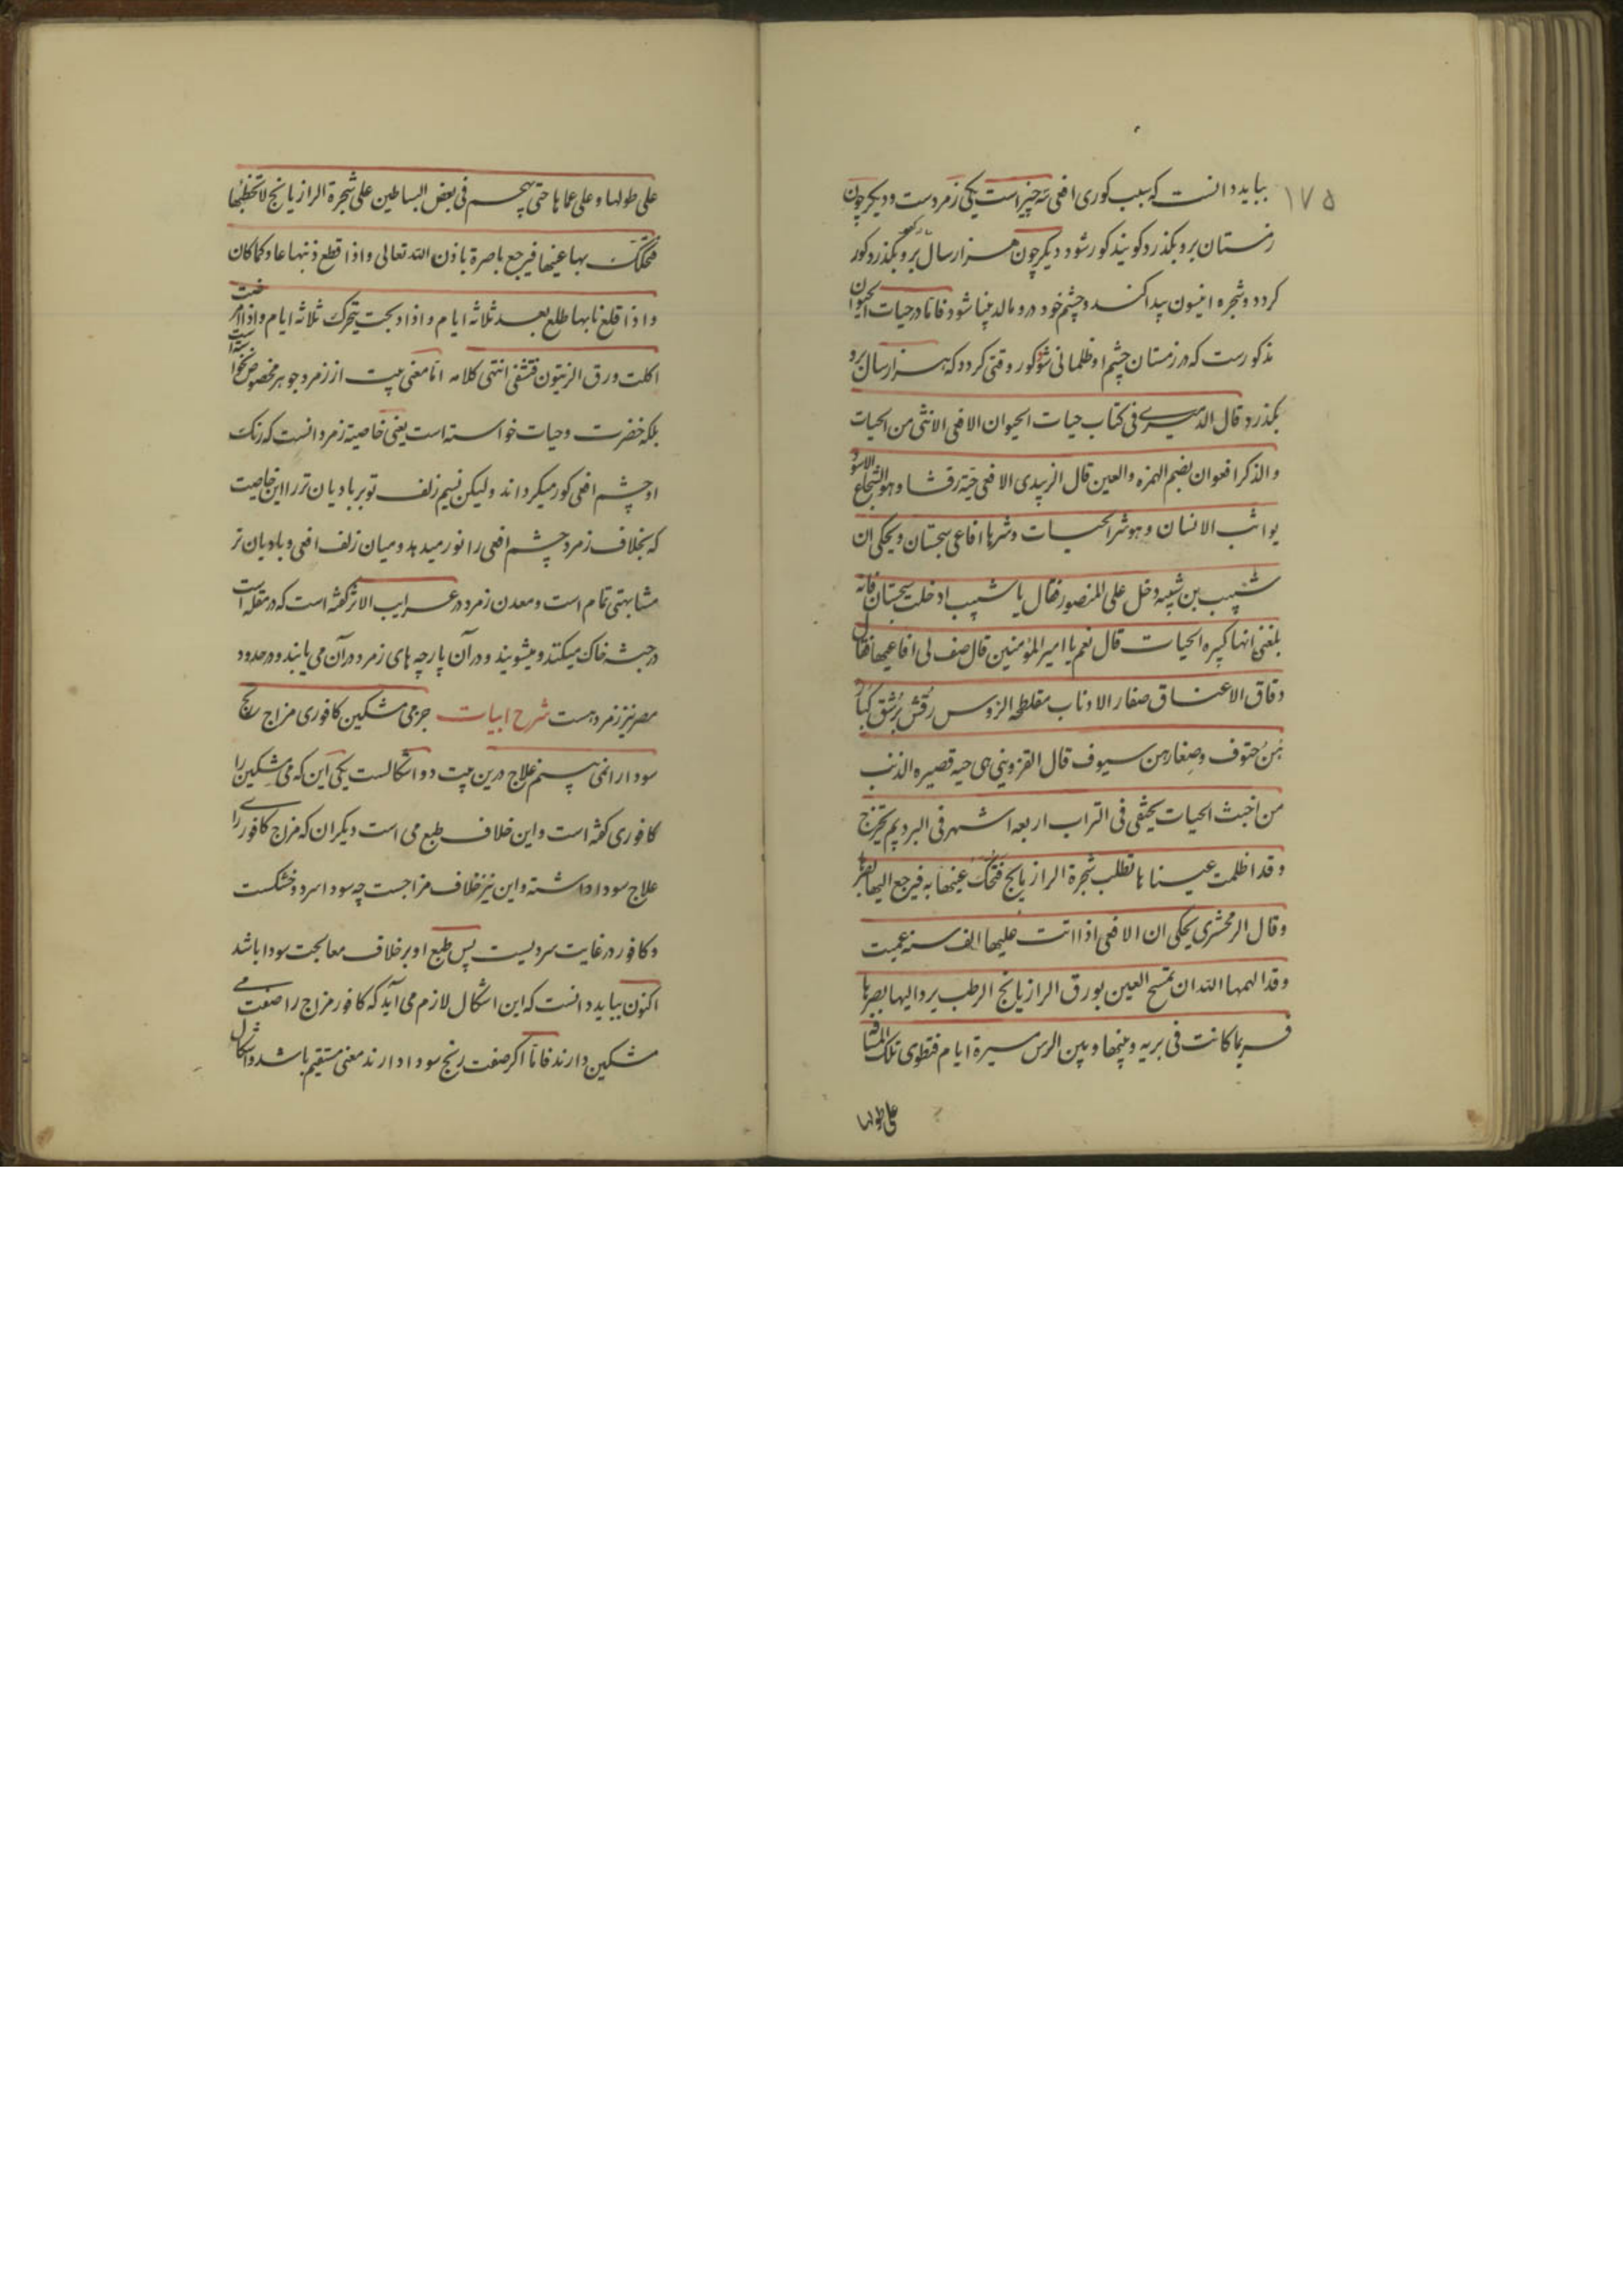 ۱۷۵
ببايد دانست که سبب کوری افعی سه چیز است یکی زمردست و دیکر چون
زمستان برو بکذرد کویند کور شود دیکر چون هزار سال برو بکذرد کور
کردد و شجره انیسون پیدا کند و چشم خود درو مالد بینا شود فاما در حیات الحیوان
مذکورست که در زمستان چشم او ظلمانی شود کور وقتی کردد که هزار سال برو
بکذرد قال الدمیری فی کتاب حیات الحیوان الافعی الانثی من الحیات
و الذکر افعوان بضم الهمزه والعین قال الزبیدی الافعی حیة رقشا وهو الشجاع الاسود
یواثب الانسان وهو شر الحیات وشرها افاعی سجستان ویحکی ان
شبیب بن شبیه دخل علی المنصور فقال یا شبیب ادخلت سجستان فانه
بلغنی انها کثیره الحیات قال نعم یا امیر المؤمنین قال صف لی افاعیها فقال
دقاق الاعناق صغار الاذناب مفلطحه الرؤس رقش برشق کبار
هن حتوف وصغارهن سیوف قال القزوینی هی حیه قصیره الذنب
من اخبث الحیات یختفی فی التراب اربعه اشهر فی البرد ثم یخرج
وقد اظلمت عیناها تطلب شجرة الرازیانج فتحک عینها به فیرجع الیها بصرها
وقال الزمخشری یحکی ان الافعی اذا اتت علیها الف سنه عمیت
وقد الهمها الله ان تمسح العین بورق الرازیانج الرطب یرد الیها بصرها
فربما کانت فی بریه وبینها وبین الرس مسیرة ایام فتطوی تلک المسافة
علی طولها
علی طولها وعلی عماها حتی تهجم فی بعض البساطین علی شجرة الرازیانج لا تخطئها
فتحکک بها عینها فیرجع باصرة باذن الله تعالی واذا قطع ذنبها عاد کما کان
واذا قلع نابها طلع بعد ثلاثه ایام واذا ذبحت یتحرک ثلاثه ایام واذا مرضت
اکلت ورق الزیتون فتشفی انتهی کلامه اما معنی بیت از زمرد جوهر مخصوص نخواسته است
بلکه خضرت وحیات خواسته است یعنی خاصیة زمرد انست که رنک
او چشم افعی کور میکرداند ولیکن نسیم زلف تو بر بادیان تر را این خاصیت
که بخلاف زمرد چشم افعی را نور میدهد ومیان زلف افعی و بادیان تر
مشابهتی تمام است ومعدن زمرد در عرایب الاثر کفته است که در مقله است
در حبشه خاک میکنند و میشویند و در آن پارچه های زمرد در آن می یابند و در حدود
مصر نیز زمرد هست شرح ابیات جز می مشکین کافوری مزاج رنج
سودا را نمی بینم علاج درین بیت دو اشکالست یکی این که می مشکین را
کافوری کفته است واین خلاف طبع می است دیکر ان که مزاج کافوری را
علاج سودا داشته و این نیز خلاف مزاجست چه سودا سرد و خشکست
و کافور در غایت سردیست پس طبع او بر خلاف معالجت سودا باشد
اکنون ببايد دانست که این اشکال لازم می آید که کافور مزاج را صفت می
مشکین دارند فاما اکر صفت رنج سودا دارند معنی مستقیم باشد و اشکال